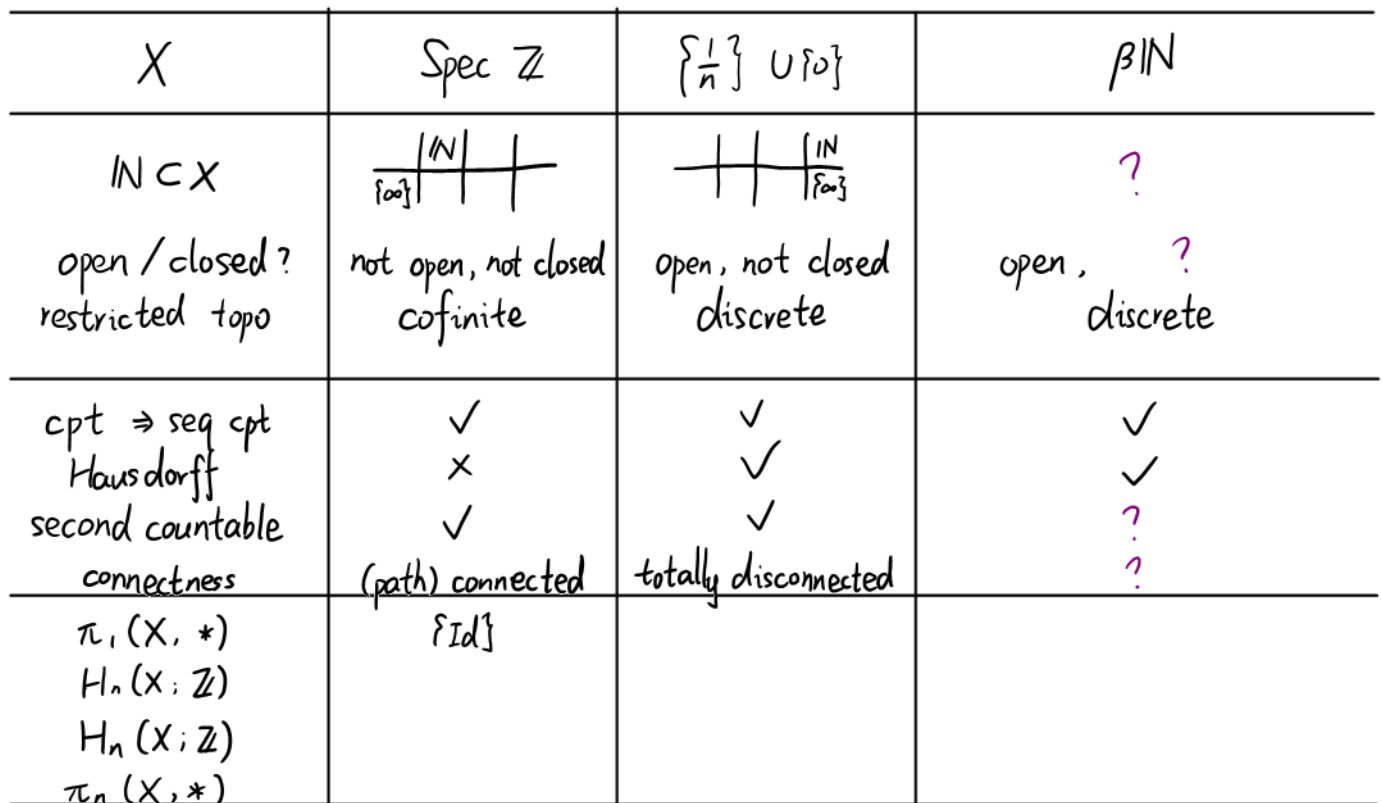 X Spec ℤ {1/n} ∪ {0} βℕ
ℕ ⊂ X ℕ {∞} ℕ {∞} ?
open / closed? not open, not closed open, not closed open, ?
restricted topo cofinite discrete discrete
cpt ⇒ seq cpt ✓ ✓ ✓
Hausdorff × ✓ ✓
second countable ✓ ✓ ?
connectness (path) connected totally disconnected ?
π₁(X, *) {Id}
Hₙ(X; ℤ)
Hₙ(X; ℤ)
πₙ(X, *)